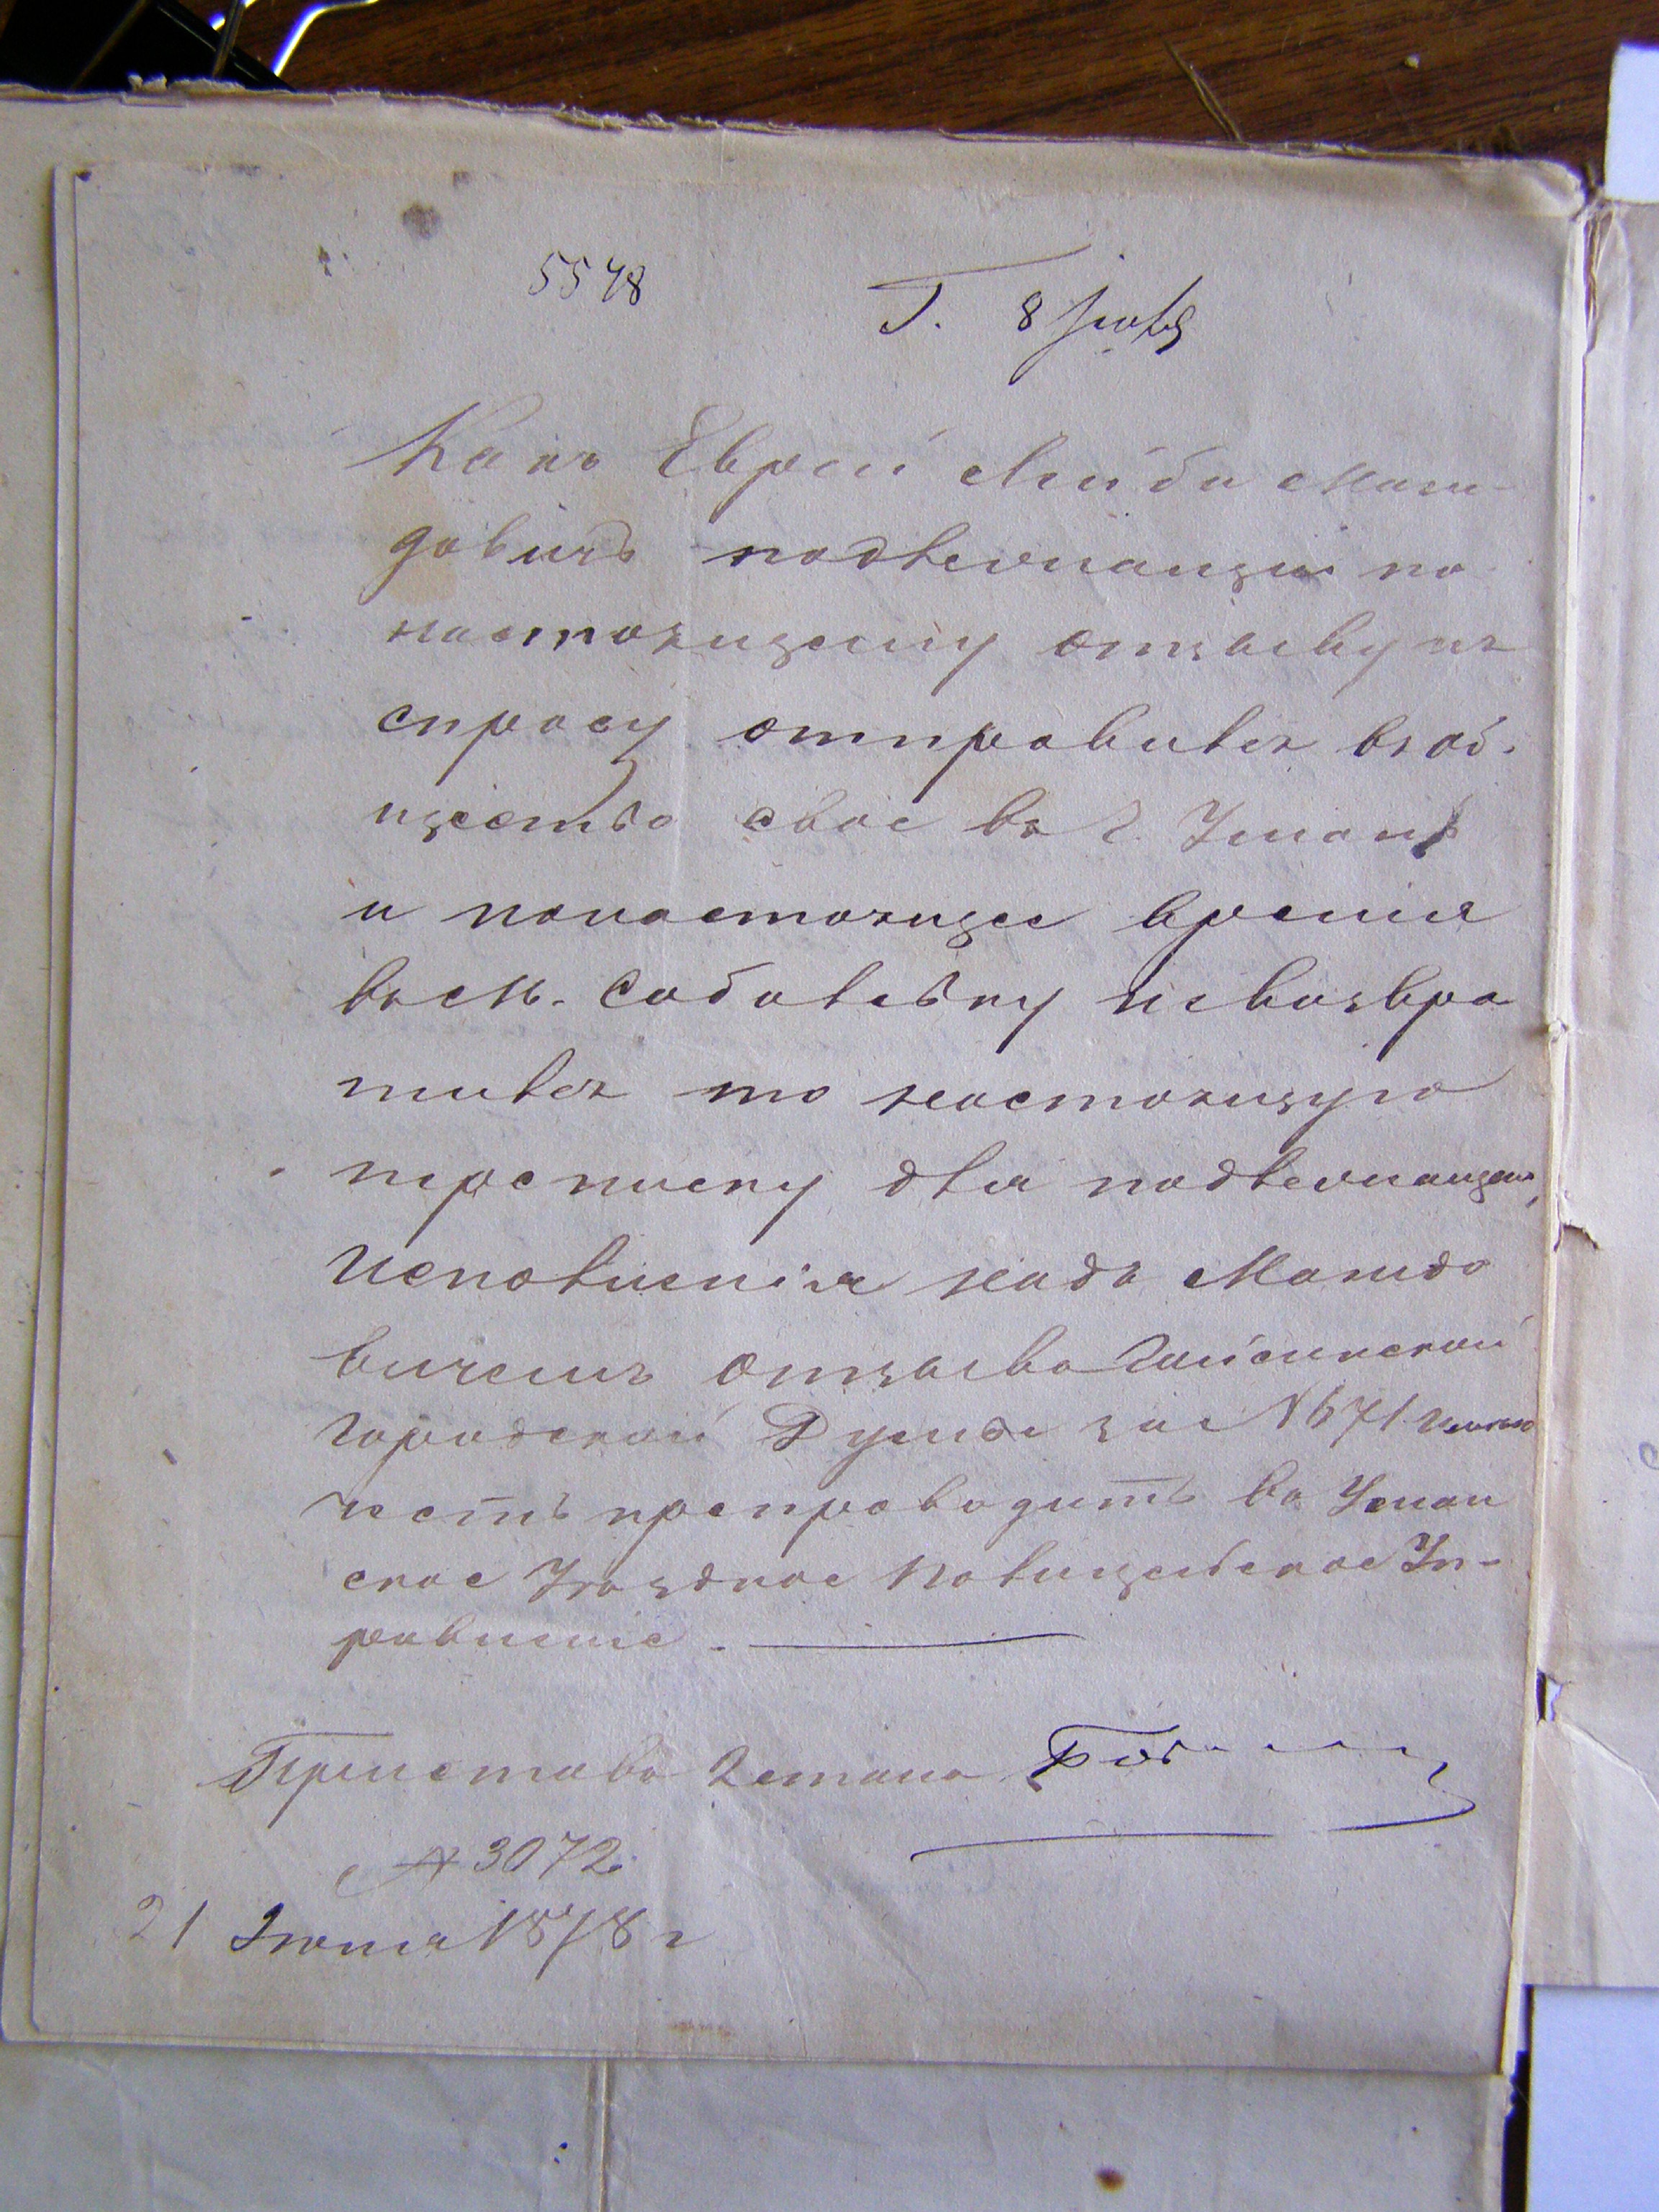 5548
Г. 8 июля
Какъ Еврей Лейба Манз-
довичъ подлежащій по
настоящему отзыву къ
спросу отправился въ об-
щество свое въ г. Умань
и понастоящее время
въ м. Соболевку невозвра
тился то настоящую
переписку для подлежащаго
исполненія надъ Манздо
вичемъ отзыва Гайсинской
Городской Думы за №671 имѣю
честь препроводить въ Уман
ское Уѣздное Полицейское Уп-
равленіе.
Приставъ 2 стана
№ 3072
21 Іюня 1878 г